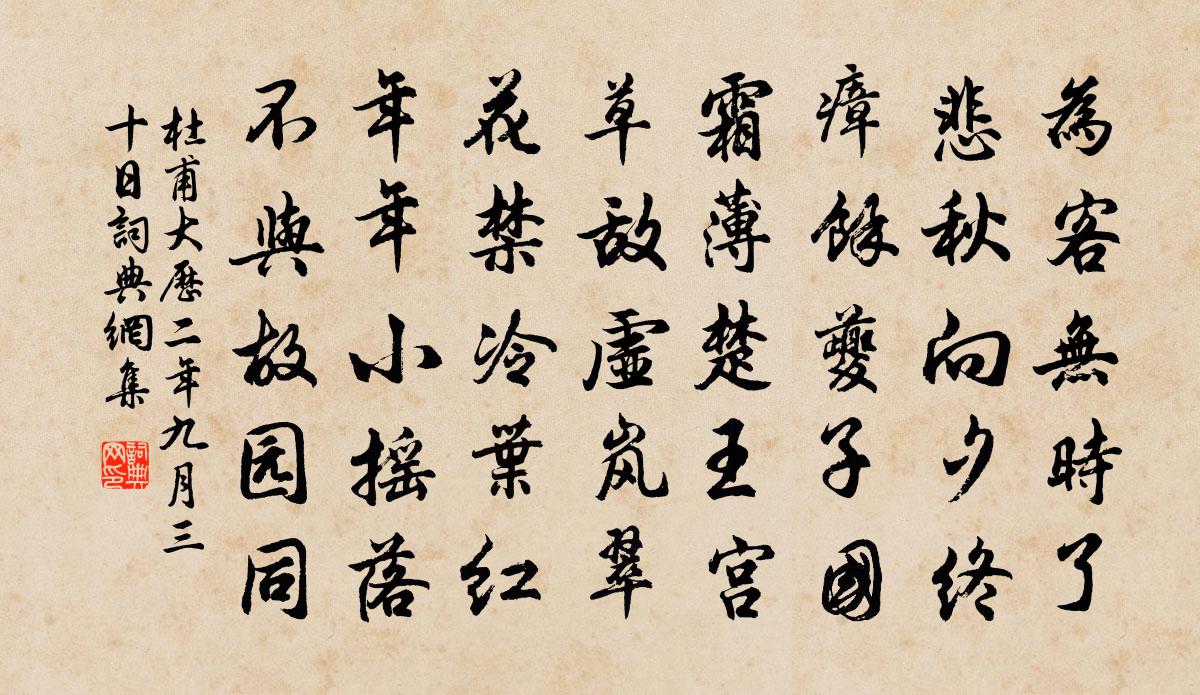 為客無時了
悲秋向夕終
瘴餘夔子國
霜薄楚王宮
草敌虛岚翠
花禁冷葉红
年年小摇落
不與故园同
杜甫大歷二年九月三
十日詞典網集
詞典网印